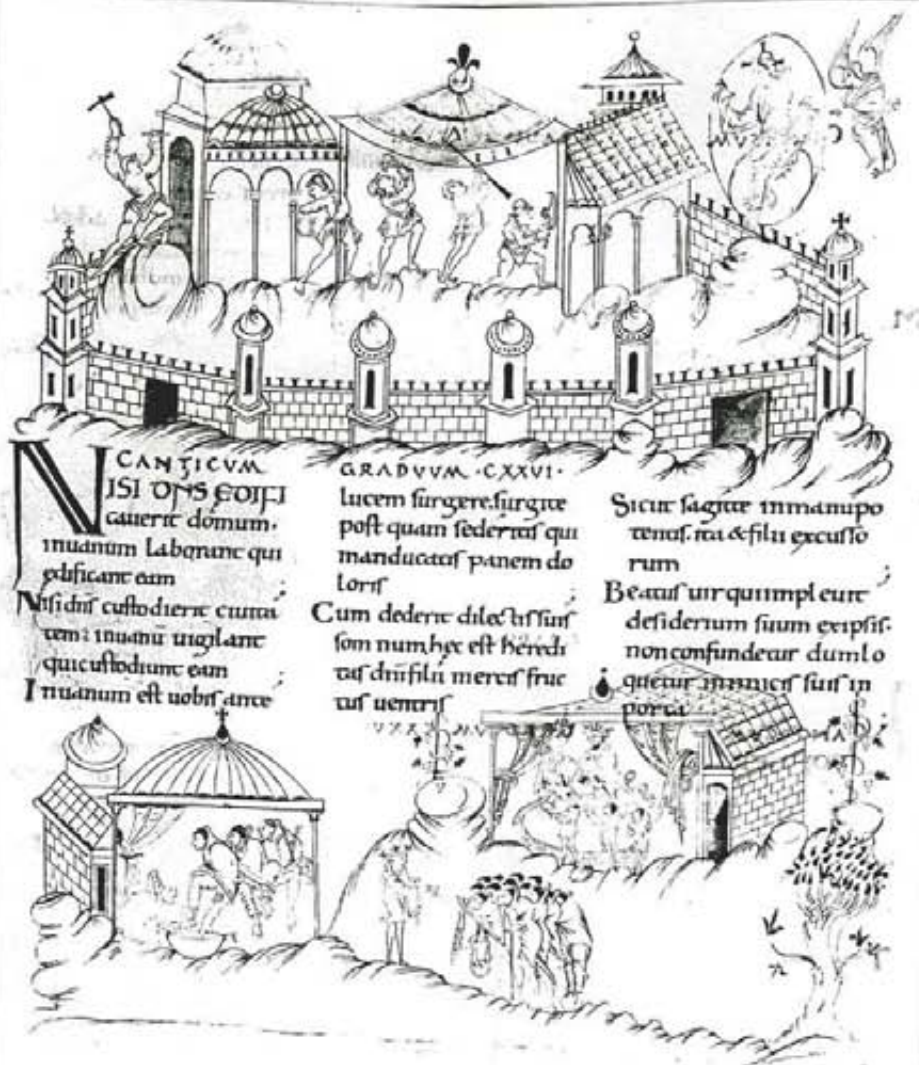 CANTICVM GRADVVM · CXXVI ·
NISI DNS EDIFI
cauerit domum.
inuanum laborant qui
edificant eam
Nisi dns custodierit ciuita
tem: inuanu uigilant
qui custodiunt eam
Inuanum est uobis ante
lucem surgere. surgite
post quam sederitis qui
manducatis panem do
loris
Cum dederit dilectis suis
somnum hec est heredi
tas dni filii mercis fruc
tus uentris
Sicut sagitte in manu po
tentis. ita & filii excusso
rum
Beatus uir qui impleuit
desiderium suum ex ipsis.
non confundetur dum lo
quetur inimicis suis in
porta